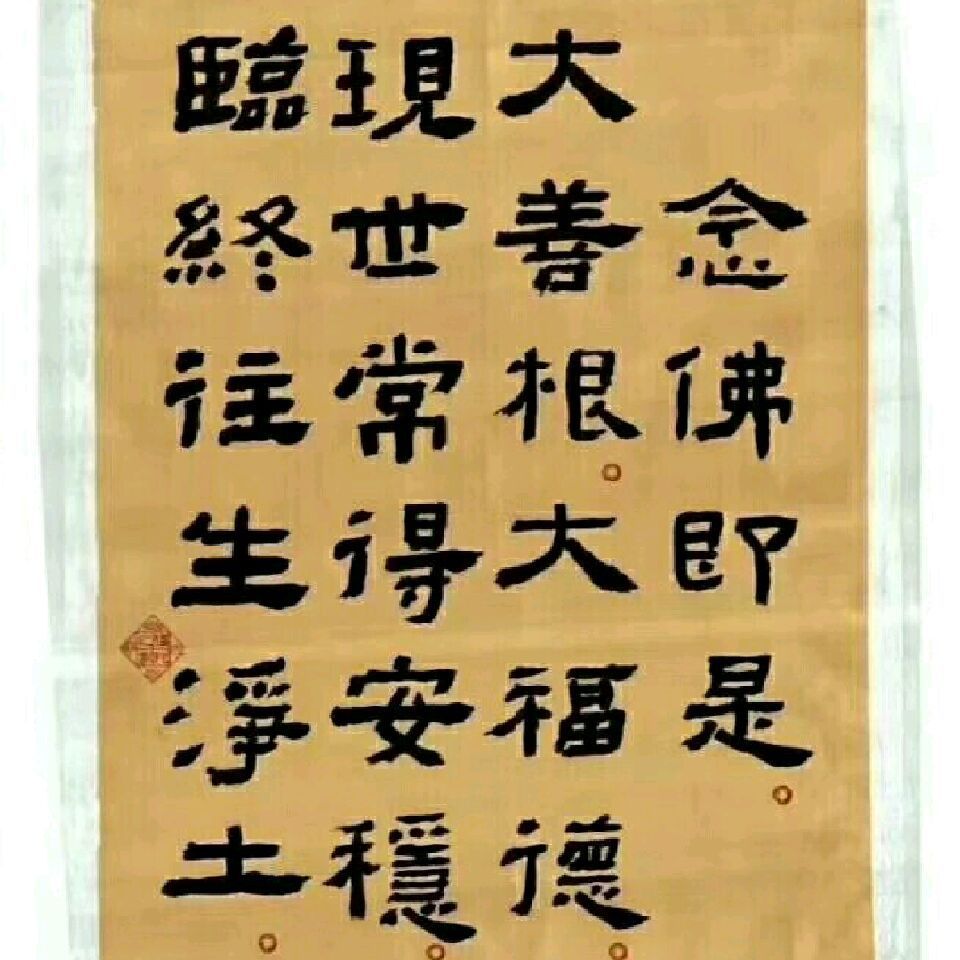 念佛即是
大善根大福德
現世常得安穩
臨終往生淨土